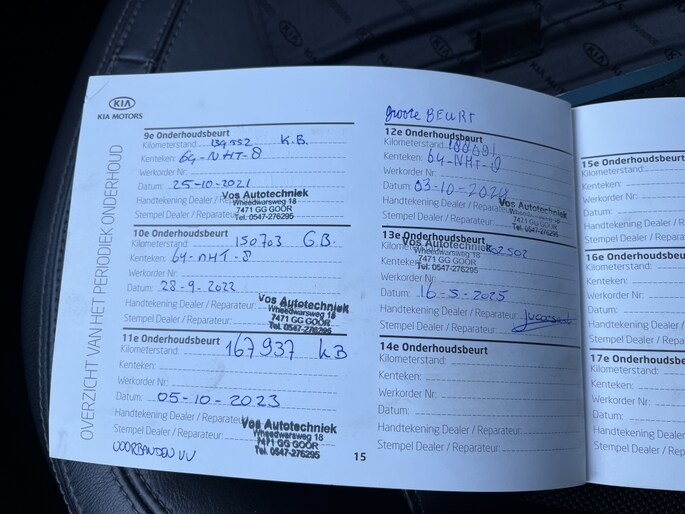 KIA
KIA MOTORS
OVERZICHT VAN HET PERIODIEK ONDERHOUD
9e Onderhoudsbeurt
Kilometerstand: 134552 K.B.
Kenteken: 64-NHT-8
Werkorder Nr:
Datum: 25-10-2021
Handtekening Dealer / Reparateur
Stempel Dealer / Reparateur
Vos Autotechniek
Wheedwarsweg 18
7471 GG GOOR
Tel. 0547-276295
10e Onderhoudsbeurt
Kilometerstand: 150703 G.B.
Kenteken: 64-NHT-8
Werkorder Nr:
Datum: 28-9-2022
Handtekening Dealer / Reparateur:
Stempel Dealer / Reparateur:
Vos Autotechniek
Wheedwarsweg 18
7471 GG GOOR
Tel. 0547-276295
11e Onderhoudsbeurt
Kilometerstand: 167937 KB
Kenteken:
Werkorder Nr:
Datum: 05-10-2023
Handtekening Dealer / Reparateur
Stempel Dealer / Reparateur:
Vos Autotechniek
Wheedwarsweg 18
7471 GG GOOR
Tel. 0547-276295
VOORBANDEN VV
15
Groote BEURT
12e Onderhoudsbeurt
Kilometerstand:
Kenteken: 64-NHT-8
Werkorder Nr:
Datum: 03-10-2024
Handtekening Dealer / Rep
Stempel Dealer / Reparateur
Vos Autotechniek
Wheedwarsweg 18
7471 GG GOOR
Tel. 0547-276295
13e Onderhoudsbeurt
Kilome
Kenteken:
Vos Autotechniek
Wheedwarsweg 18
7471 GG GOOR
Tel. 0547-276295
Werkorder Nr:
Datum: 16-5-2025
Handtekening Dealer / Reparateur:
Stempel Dealer / Reparateur:
14e Onderhoudsbeurt
Kilometerstand:
Kenteken:
Werkorder Nr:
Datum:
Handtekening Dealer / Reparateur:
Stempel Dealer / Reparateur:
15e Onderhoudsbe
Kilometerstand:
Kenteken:
Werkorder Nr:
Datum:
Handtekening De
Stempel Dealer /
16e Onderh
Kilometersta
Kenteken:
Werkorder
Datum:
Handteken
Stempel D
17e Onde
Kilometer
Kenteken
Werkord
Datum:
Handte
Stempe